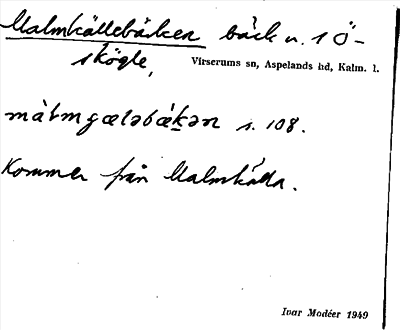 Malmkällebäcken bäck n. 1 Ö-
skögle,
Virserums sn, Aspelands hd, Kalm. l.
màlmgæləbækən s. 108.
Kommer från Malmkälla.
Ivar Modéer 1949